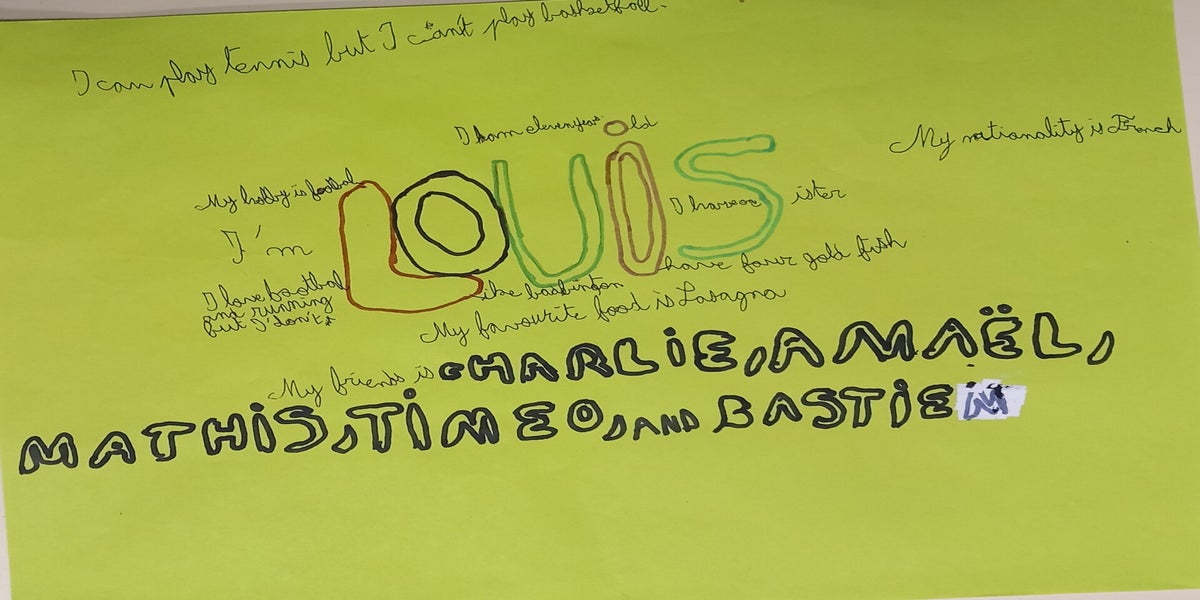 I can play tennis but I can't play basketball.
I am eleven years old
My nationality is French
My hobby is football
LOUiS
I have a sister
I'm
I have four gold fish
I love football
and running
but I don't
like badminton
My favourite food is Lasagna
My friends is CHARLiE, AMAËL,
MATHiS, TiMEO, AND BASTiEN